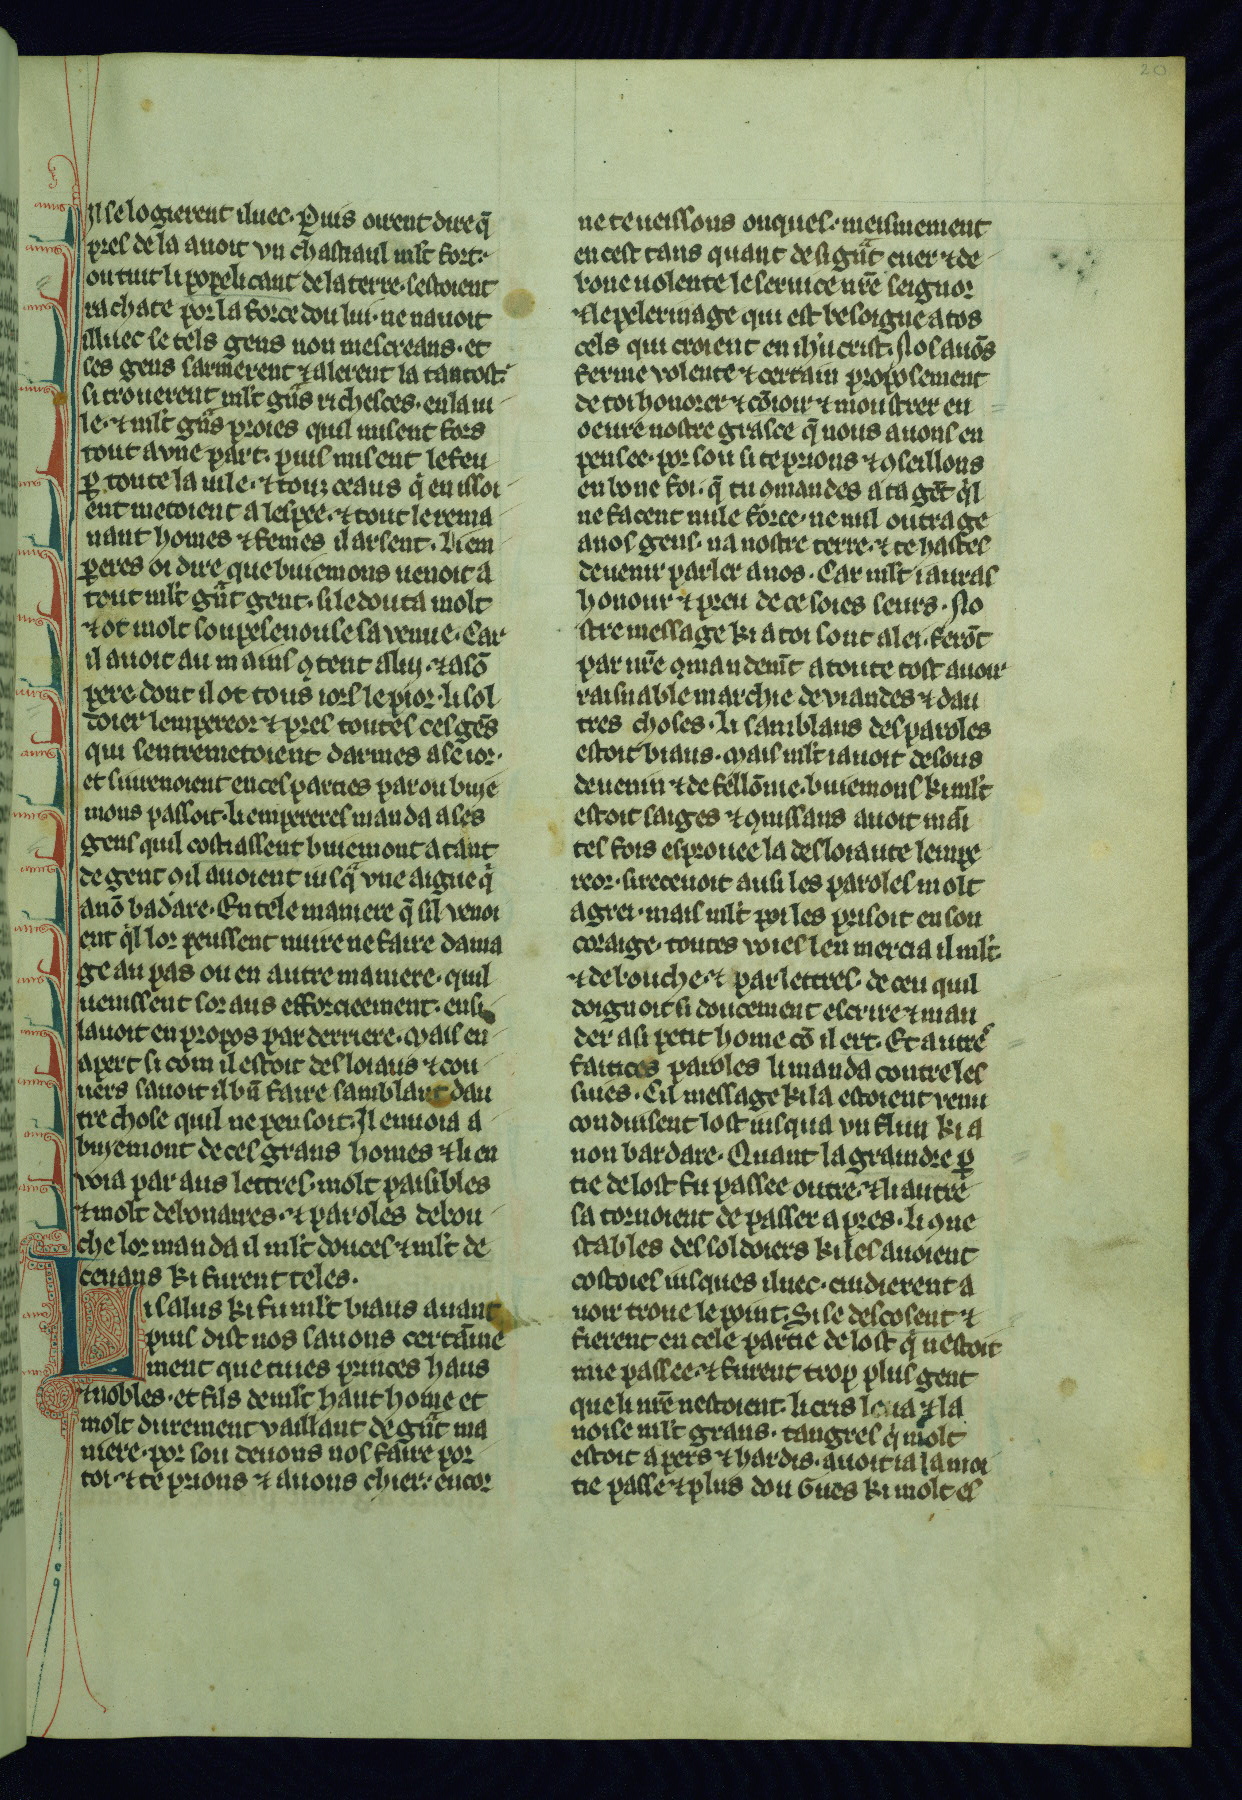 20
Il se logierent iluec. Puis oirent dire q̃
pres de la auoit vn chastiaul ml't fort.
ou tuit li popelicant de la terre sestoient
rachate por la force dou lui. ne nauoit
illuec se tels gens non mescreans. et
ses gens sarmerent ⁊ alerent la tantost.
si trouerent ml't gñs richesces. en la ui
le. ⁊ ml't gñs proies quil misent fors
tout a vne part. puis misent le feu
ꝑ toute la uile. ⁊ touz ceaus q̃ en issoi
ent metoient a lespee. ⁊ tout le rema
nant homes ⁊ femes il arsent. Liem
peres oi dire que buiemons uenoit a
tout ml't gñt gent. si le douta molt
⁊ ot molt soupesenouse sa venue. Car
il auoit au mains ꝯtent a lui. ⁊ a sõ
pere. dont il ot tous iors le pior. li sol
doier lempereor ⁊ pres toutes ces gẽs
qui sentremetoient darmes a seior.
et siuuenoient en ces parties par ou buie
mons passoit. li empereres manda a ses
gens quil costiassent buiemont a tant
de gent ꝯ il auoient iusq̃ vne aigue q̃
a nõ badare. En tele maniere q̃ sil venoi
ent q̃l lor peussent nuire ne faire dama
ge au pas ou en autre maniere. quil
uenissent sor aus efforcieement. ensi
lauoit en propos par derriere. Mais en
apert si com il estoit desloiaus ⁊ cou
uers sauoit il bñ faire samblant dau
tre chose quil ne pensoit. Il enuoia a
buyemont de ces grans homes ⁊ li en
voia par aus lettres. molt paisibles
⁊ molt debonaires. ⁊ paroles de bou
che lor manda il ml't douces ⁊ ml't de
ceuans ki furent teles.
Li salus ki fu ml't biaus auant
puis dist nos sauons certaine
ment que tu ies princes haus
⁊ nobles. et fils de ml't haut home et
molt durement vaillant de gñt ma
niere. por sou deuons nos faire por
toi. ⁊ te prions ⁊ auons chier. encor
ne te ueissons onques. meismement
en cest tans quant de si gñt cuer ⁊ de
bone uolente le seruice nr̃e seignor
⁊ le pelerinage qui est besoigne a tos
cels qui croient en ihũ crist. Nos auõs
ferme volente ⁊ certain proposement
de toi honorer ⁊ cõioir ⁊ moustrer en
oeure nostre grasce q̃ nous auons en
pensee. por sou si te prions ⁊ ꝯseillons
en bone foi. q̃ tu ꝯmandes a ta gẽt q̃l
ne facent nule force. ne nul outrage
a nos gens. n a nostre terre. ⁊ te hastes
de uenir parler a nos. Car ml't i auras
honour ⁊ preu de ce soies seurs. No
stre message ki a toi sont alei. ferõt
par nr̃e ꝯmandem̃t a toute tost auoir
raisnable marchie de viandes ⁊ dau
tres choses. Li samblans des paroles
estoit biaus. Mais ml't i auoit desous
de uenin ⁊ de fellõnie. buiemons ki ml't
estoit saiges ⁊ ꝯnissans auoit mãi
tes fois esprouee la desloiaute lempe
reor. si receuoit ausi les paroles molt
a grei. mais ml't poi les prisoit en son
coraige. toutes voies len mercia il ml't
⁊ de bouche. ⁊ par lettres. de ceu quil
doignoit si doucement escrire ⁊ man
der a si petit home cõ il ert. Et autre
faitices paroles li manda contre les
siues. Cil message ki la estoient venu
conduisent lost iusqua vn flun ki a
non bardare. Quant la graindre ꝑ
tie de lost fu passee outre. ⁊ li autre
satornoient de passer apres. li ꝯne
stables des soldoiers ki les auoient
costoies iusques iluec. cuidierent a
uoir troue le point. Si se descosent ⁊
fierent en cele partie de lost q̃ nestoit
mie passee. ⁊ furent trop plus gent
que li nr̃e nestoient. li cris leua ⁊ la
noise ml't grans. tangres q̃ molt
estoit apers ⁊ hardis. auoit ia la moi
tie passe ⁊ plus dou Gues ki molt es